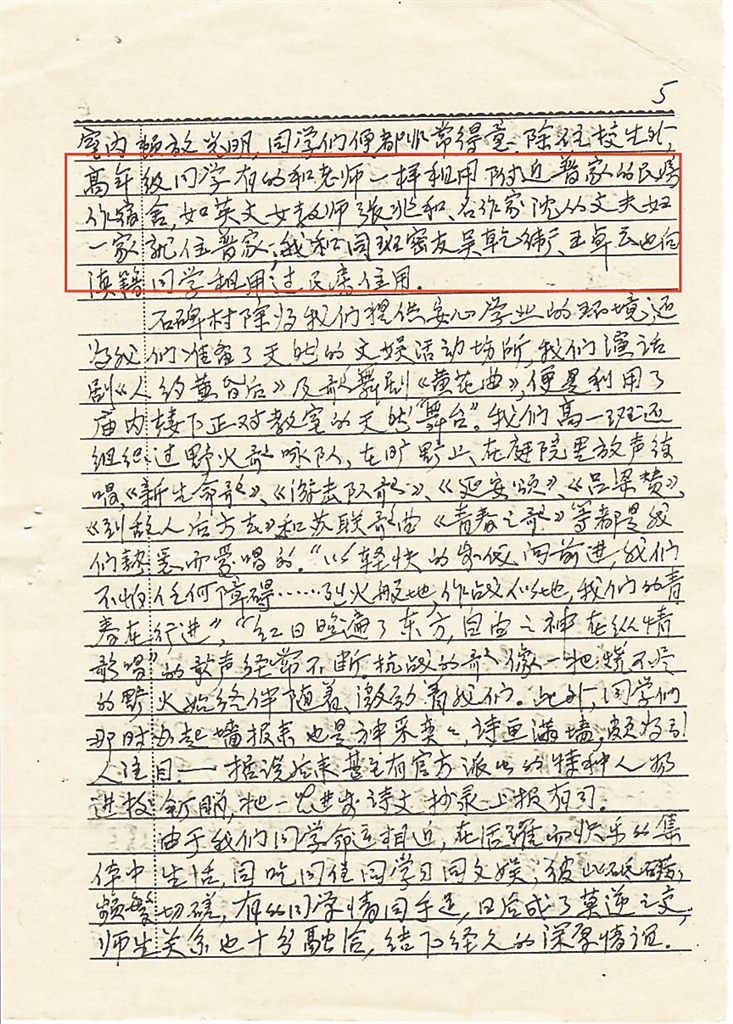 5
室内顿放光明,同学们便都非常得意。除住校生外,
高年级同学有的和老师一样租用附近普家的民房
作宿舍,如英文女教师张兆和、名作家沈从文夫妇
一家就住普家;我和同班密友吴乾 、王卓 也向
滇籍同学租用过民房住用。
石碑村除为我们提供安心学业的环境,还
为我们准备了天然的文娱活动场所,我们演话
剧《人约黄昏后》及歌舞剧《黄花曲》,便是利用了
庙内楼下正对教室的天然“舞台”。我们高一班还
组织过野火歌咏队,在旷野上、在庭院里放声终
唱,《新生命歌》、《游击队歌》、《延安颂》、《吕梁赞》、
《到敌人后方去》和苏联歌曲《青春之歌》等都是我
们熟悉而常唱的。“以轻快的步伐向前进,我们
不怕任何障碍……烈火般地,作战似地,我们的青
春在行进”,“红日照遍了东方,自由之神在纵情
歌唱”的歌声经常不断,抗战的歌像一把烧不尽
的野火始终伴随着、激动着我们。此外,同学们
那时办起墙报来也是神采奕々,诗画满墙,颇为引
人注目。——据说后来甚至有官方派出的特种人物
进校 ,把一些进步诗文抄录上报有司。
由于我们同学命运相近,在活跃而快乐的集
体中生活,同吃同住同学习同文娱;彼此砥砺,
频繁切磋,有的同学情同手足,日后成了莫逆之交,
师生关系也十分融洽,结下经久的深厚情谊。